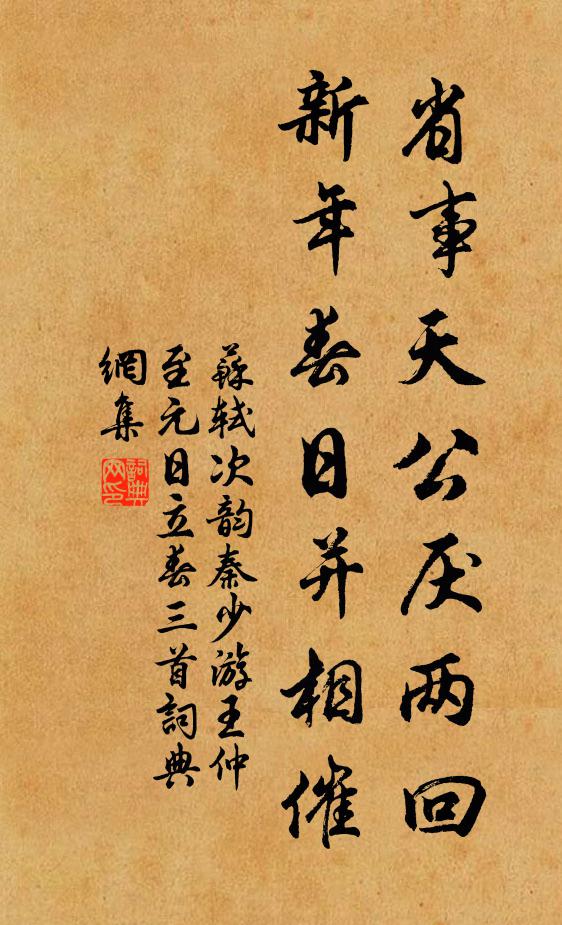 省事天公厌两回
新年春日并相催
蘇轼次韵秦少游王仲
至元日立春三首詞典
網集
詞典
网印